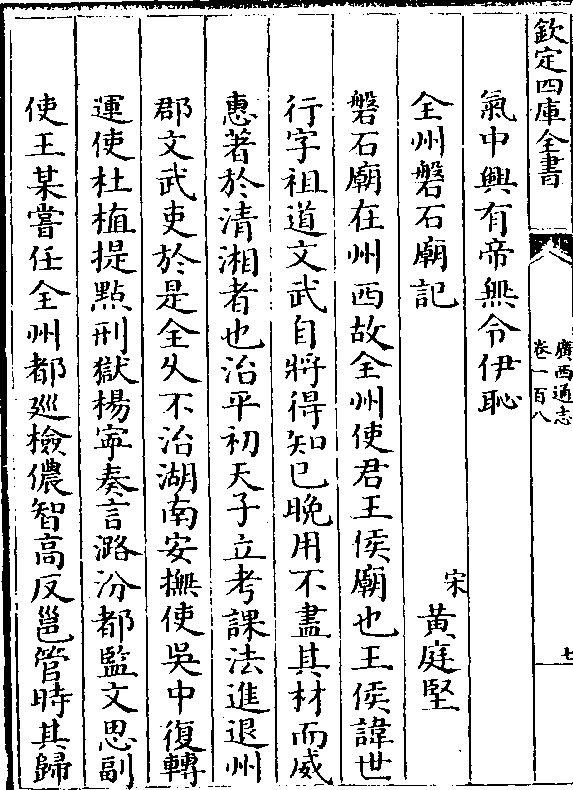 欽定四庫全書
廣西通志
卷一百八
七
氣中興有帝無令伊恥
全州磐石廟記
宋
黃庭堅
磐石廟在州西故全州使君王侯廟也王侯諱世
行字祖道文武自將得知已晚用不盡其材而威
惠著於清湘者也治平初天子立考課法進退州
郡文武吏於是全久不治湖南安撫使吳中復轉
運使杜植提點刑獄楊寜奏言潞汾都監文思副
使王某嘗任全州都廵檢儂智高反邕管時其歸